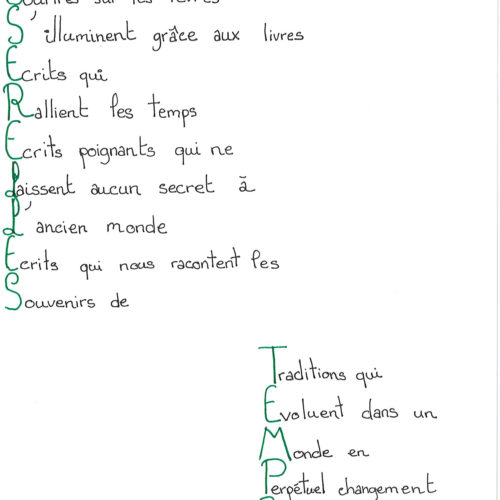 sur les
S'illuminent grâce aux livres
Ecrits qui
Rallient les temps
Ecrits poignants qui ne
Laissent aucun secret à
L'ancien monde
Ecrits qui nous racontent les
Souvenirs de
Traditions qui
Evoluent dans un
Monde en
Perpétuel changement